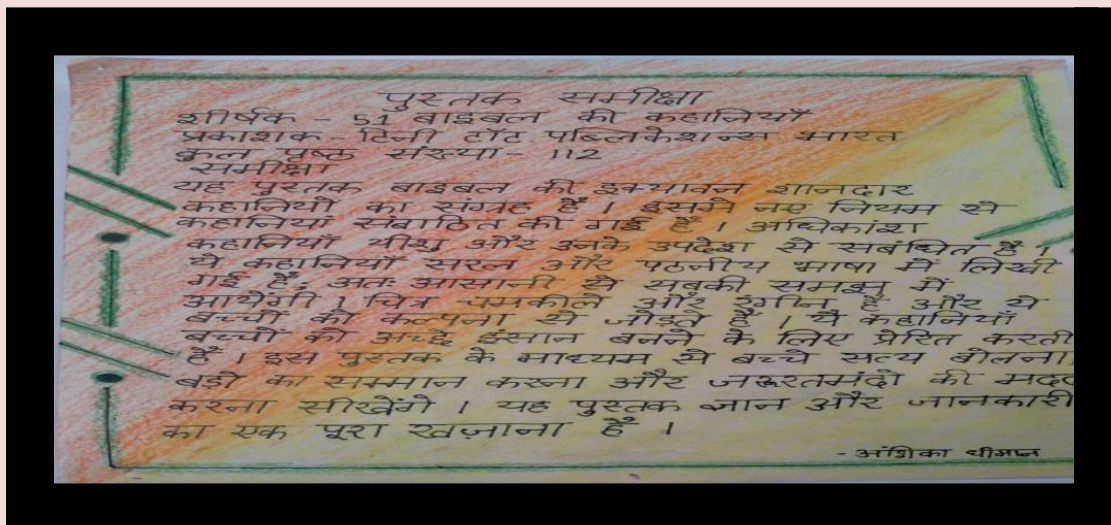 पुस्तक समीक्षा
शीर्षक - 51 बाइबल की कहानियाँ
प्रकाशक टिनी टॉट पब्लिकेशन्स भारत
कुल पृष्ठ संख्या - 112
समीक्षा
यह पुस्तक बाइबल की इक्यावन शानदार
कहानियों का संग्रह है । इसमें नए नियम से
कहानियां संबाठित की गई है । अधिकांश
कहानियाँ यीशु और उनके उपदेश से सबंधित है ।
ये कहानियाँ सरल और पठनीय भाषा में लिखी
गई हैं, अतः आसानी से सबकी समझ में
आयेंगी । चित्र चमकीले और रंगीन है और ये
बच्चों को कल्पना से जोड़ते है । ये कहानियाँ
बच्चों को अच्छे इंसान बनने के लिए प्रेरित करती
है । इस पुस्तक के माध्यम से बच्चे सत्य बोलना
बडो का सम्मान करना और जरूरतमंदो की मदद
करना सीखेंगे । यह पुस्तक ज्ञान और जानकारी
का एक पूरा खज़ाना है ।
- अंशिका धीमान